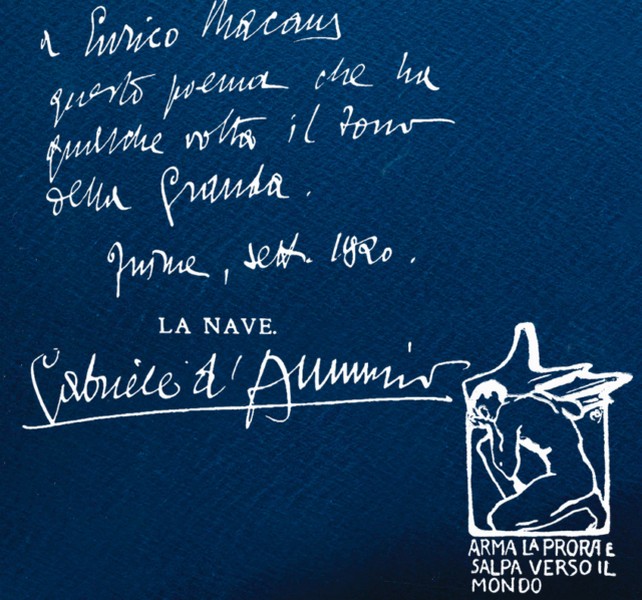 a Enrico
questo poema che ha
qualche volta il tono
della Granda.
Fiume, sett. 1920.
LA NAVE.
Gabriele d'Annunzio
ARMA LA PRORA E
SALPA VERSO IL
MONDO